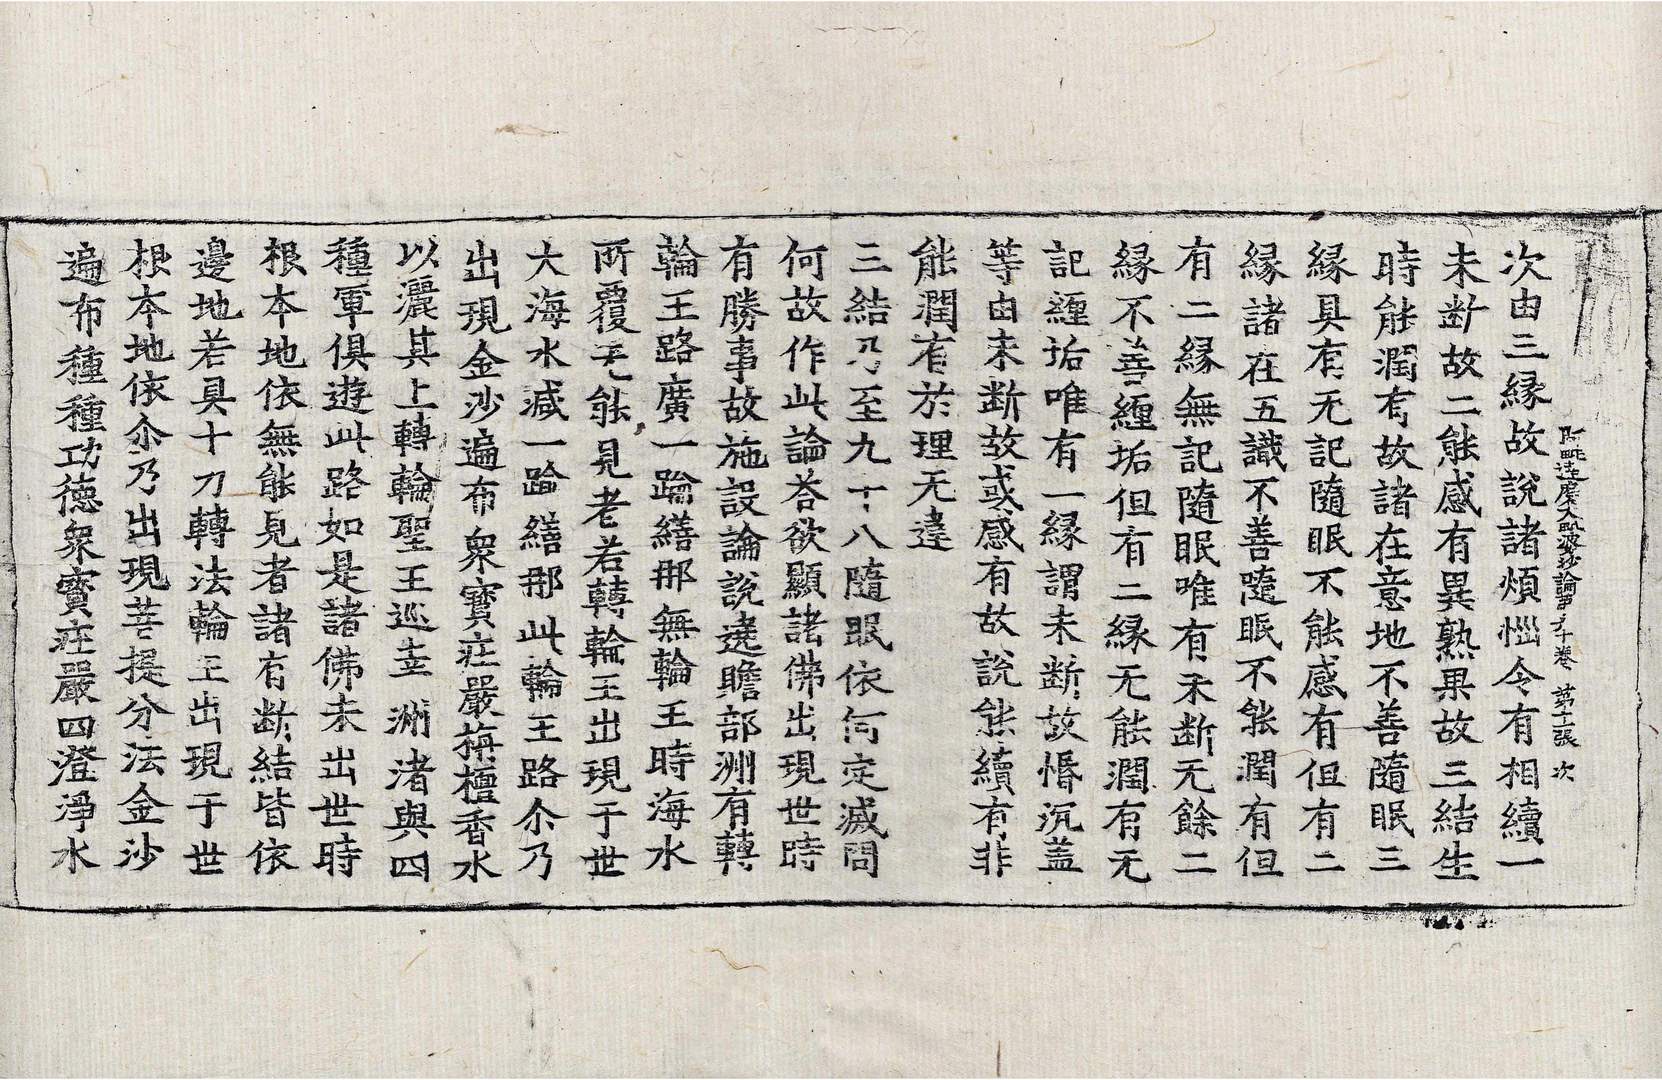 阿毗達磨大毗婆沙論第六十卷 第十張 次
次由三縁故說諸煩惱令有相續一
未断故二能感有異熟果故三結生
時能潤有故諸在意地不善隨眠三
縁具有无記隨眠不能感有但有二
縁諸在五識不善隨眠不能潤有但
有二縁無記隨眠唯有未断无餘二
縁不善纏垢但有二縁无能潤有无
記纏垢唯有一縁謂未断故惛沉盖
等由未断故或感有故說能續有非
能潤有於理无違
三結乃至九十八隨眠依何定滅問
何故作此論荅欲顯諸佛出現世時
有勝事故施設論說遶贍部洲有轉
輪王路廣一踰繕那無輪王時海水
所覆无能見者若轉輪王出現于世
大海水減一踰繕那此輪王路尒乃
出現金沙遍布衆寳莊嚴栴檀香水
以灑其上轉輪聖王巡幸洲渚與四
種軍俱遊此路如是諸佛未出世時
根本地依無能見者諸有断結皆依
邊地若具十力轉法輪王出現于世
根本地依尒乃出現菩提分法金沙
遍布種種功德衆寳莊嚴四澄淨水